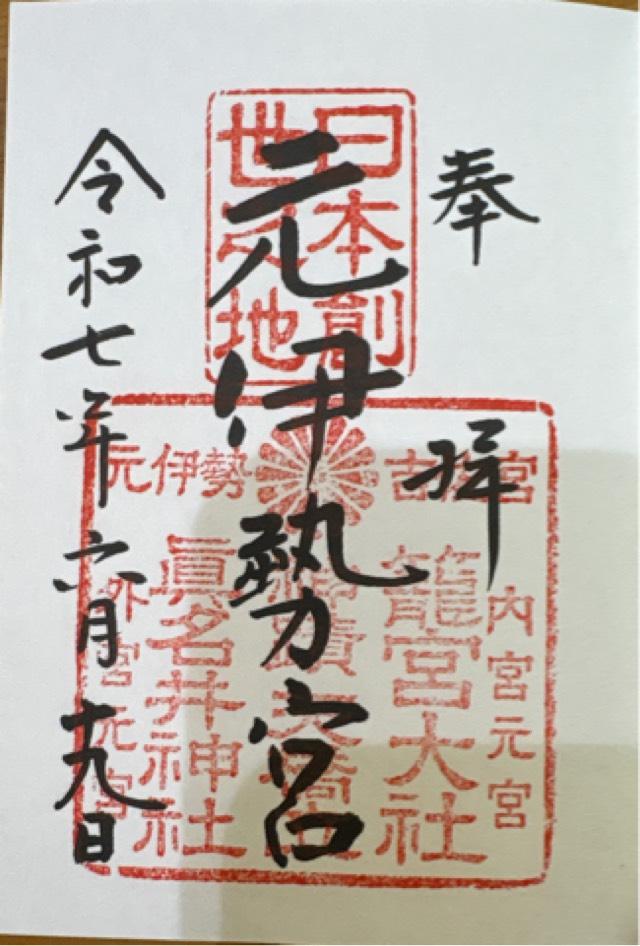 奉拝
日本創
世之地
元伊勢宮
令和七年六月十九日
元伊勢
吉佐宮
内宮元宮
籠宮大社
神蹟天橋立
眞名井神社
外宮元宮